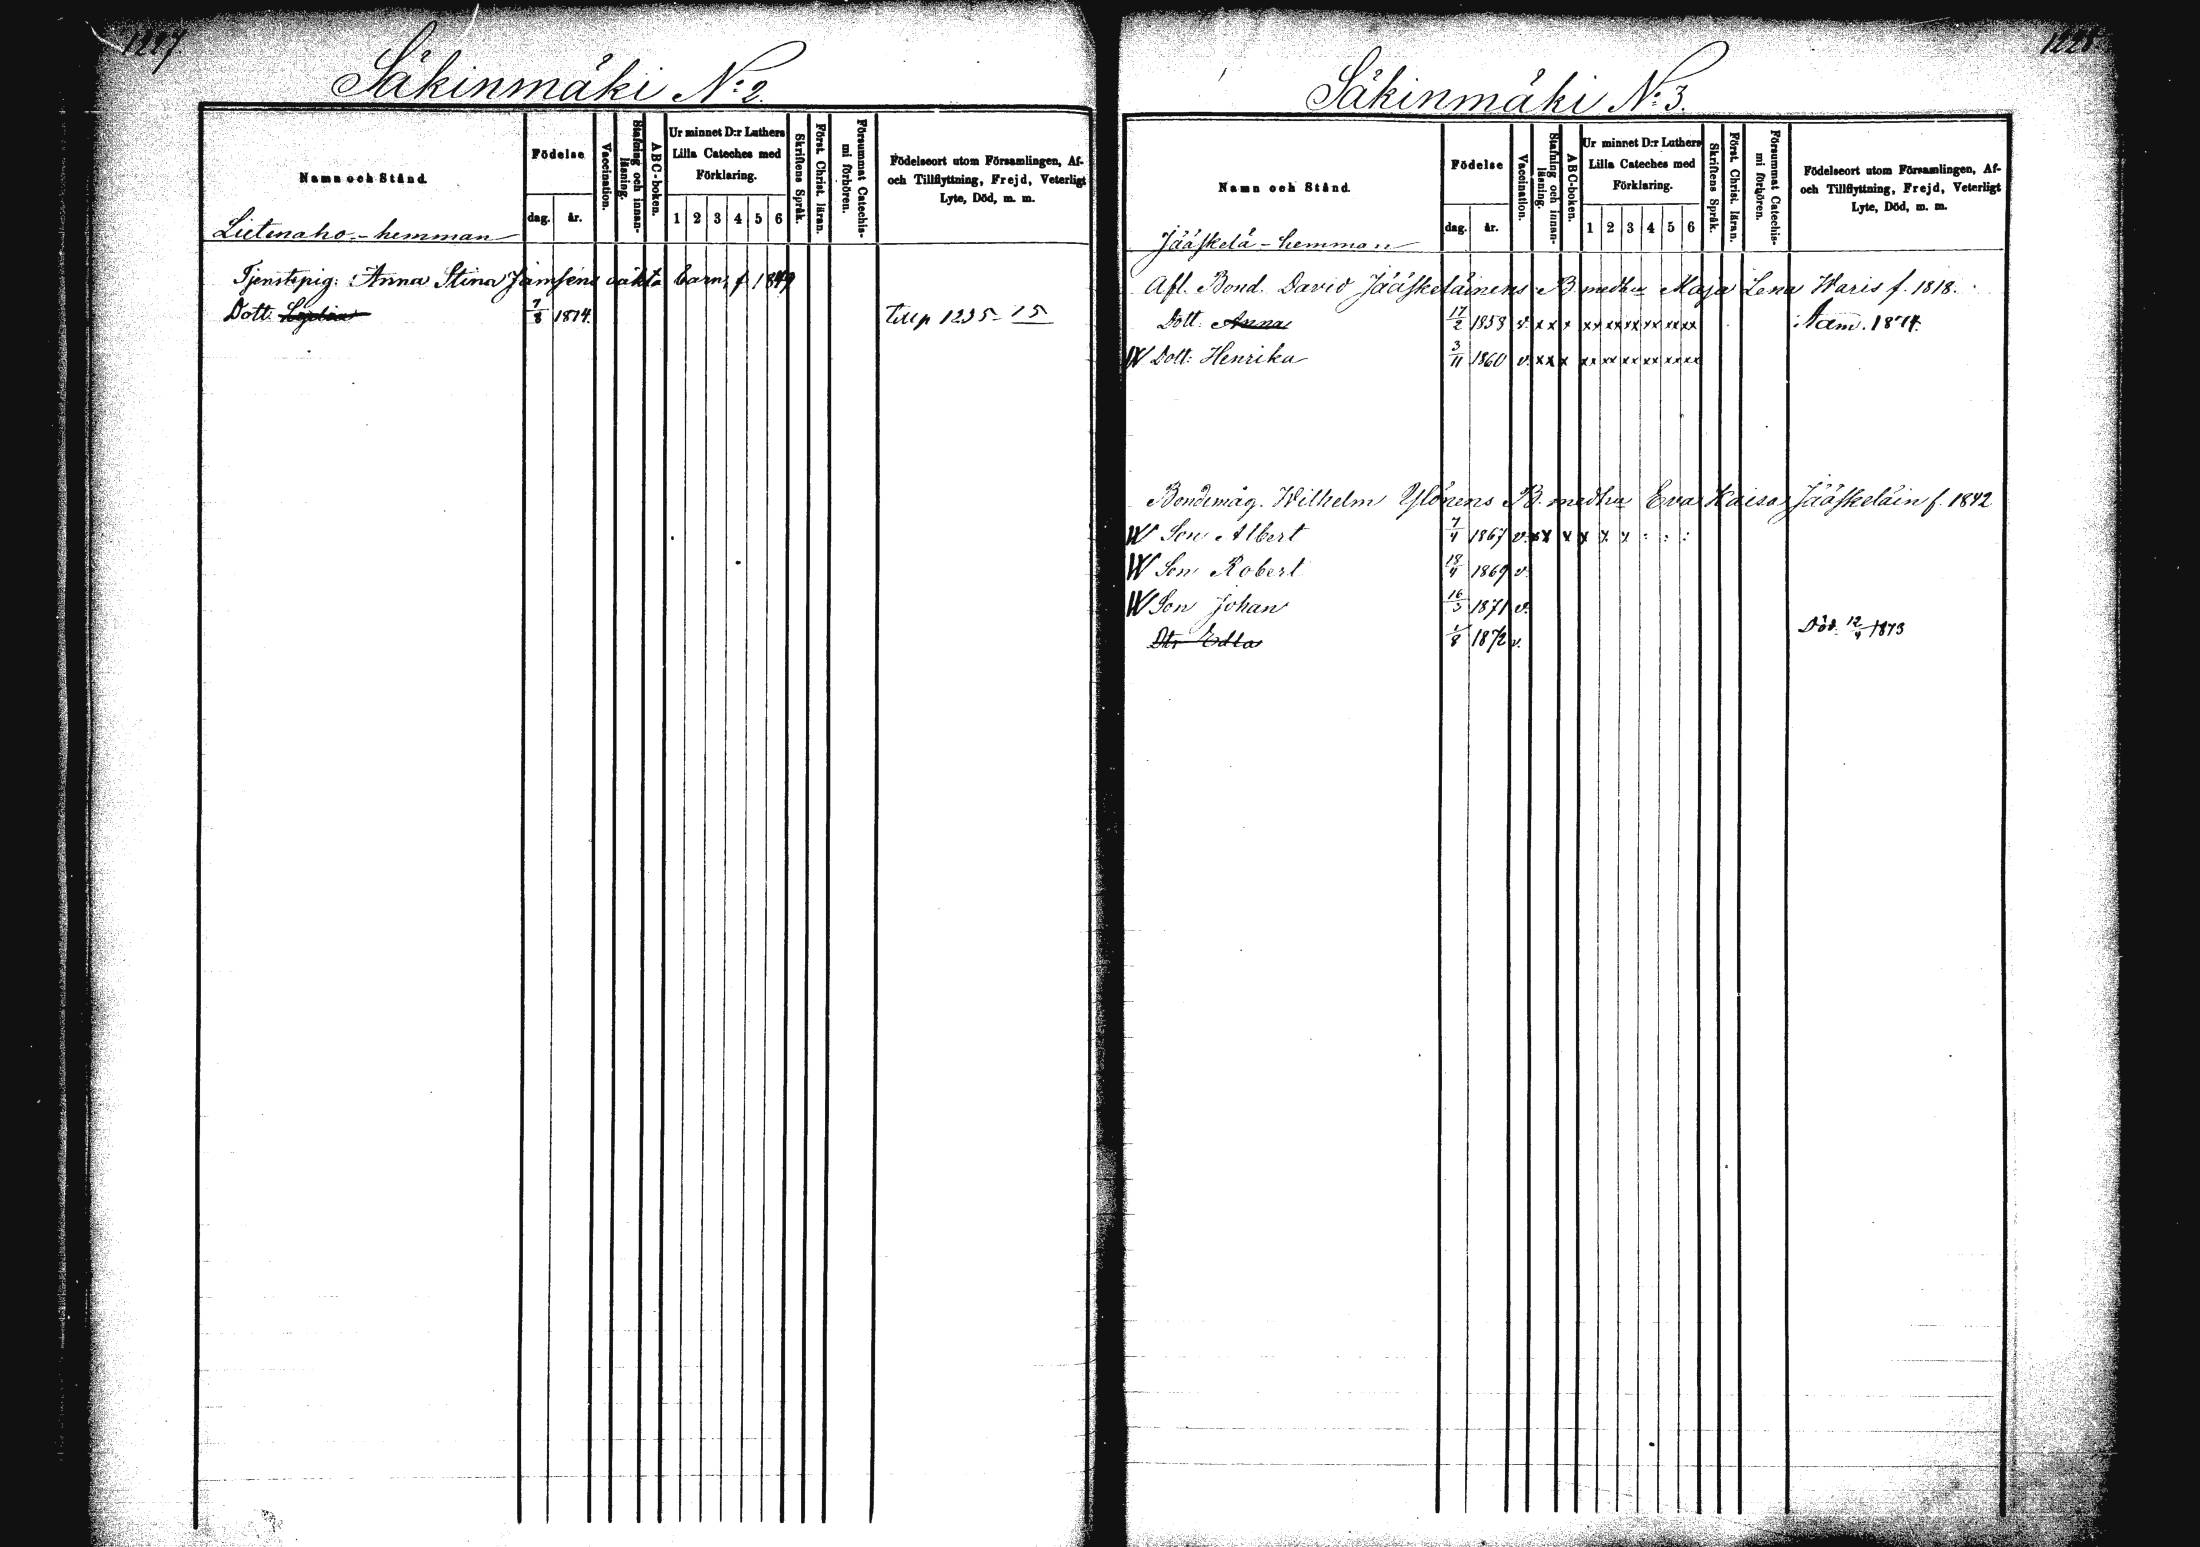 1227.
Säkinmäki No: 2.
Namn och Stånd.
Födelse
dag.
år.
Vaccination.
Stafning och innanläsning.
ABC-boken.
Ur minnet D:r Luthers
Lilla Cateches med
Förklaring.
1 2 3 4 5 6
Skriftens Språk.
Först. Christ. läran.
Försummat Catechis-
mi förhören.
Födelseort utom Församlingen, Af-
och Tillflyttning, Frejd, Veterligt
Lyte, Död, m. m.
Lietenaho - hemman
Tjenstepig: Anna Stina Jämsens oäkta barn, f. 1849
Dott. 7/8 1874. 1235
Säkinmäki No: 3.
Namn och Stånd.
Födelse
dag.
år.
Vaccination.
Stafning och innanläsning.
ABC-boken.
Ur minnet D:r Luthers
Lilla Cateches med
Förklaring.
1 2 3 4 5 6
Skriftens Språk.
Först. Christ. läran.
Försummat Catechis-
mi förhören.
Födelseort utom Församlingen, Af-
och Tillflyttning, Frejd, Veterligt
Lyte, Död, m. m.
Jääskelä - hemman
Afl. Bond. David Jääskeläinens B medhu Maja Lena Waris f. 1818.
Dott. Anna 17/2 1858 v. x x x xx xx xx xx xx xx Nam. 1874.
W Dott. Henrika 3/11 1860 v. x x x xx xx xx xx xx xx
Bondemåg. Wilhelm Ylönens B. medhu Eva Kaisa Jääskeläin f. 1842
W Son Albert 7/4 1867 v. xx x x x x : : :
W Son Robert 18/4 1869 v.
W Son Johan 16/3 1871 v.
Dtr Edla 1/8 1872 v. Död. 12/4 1873